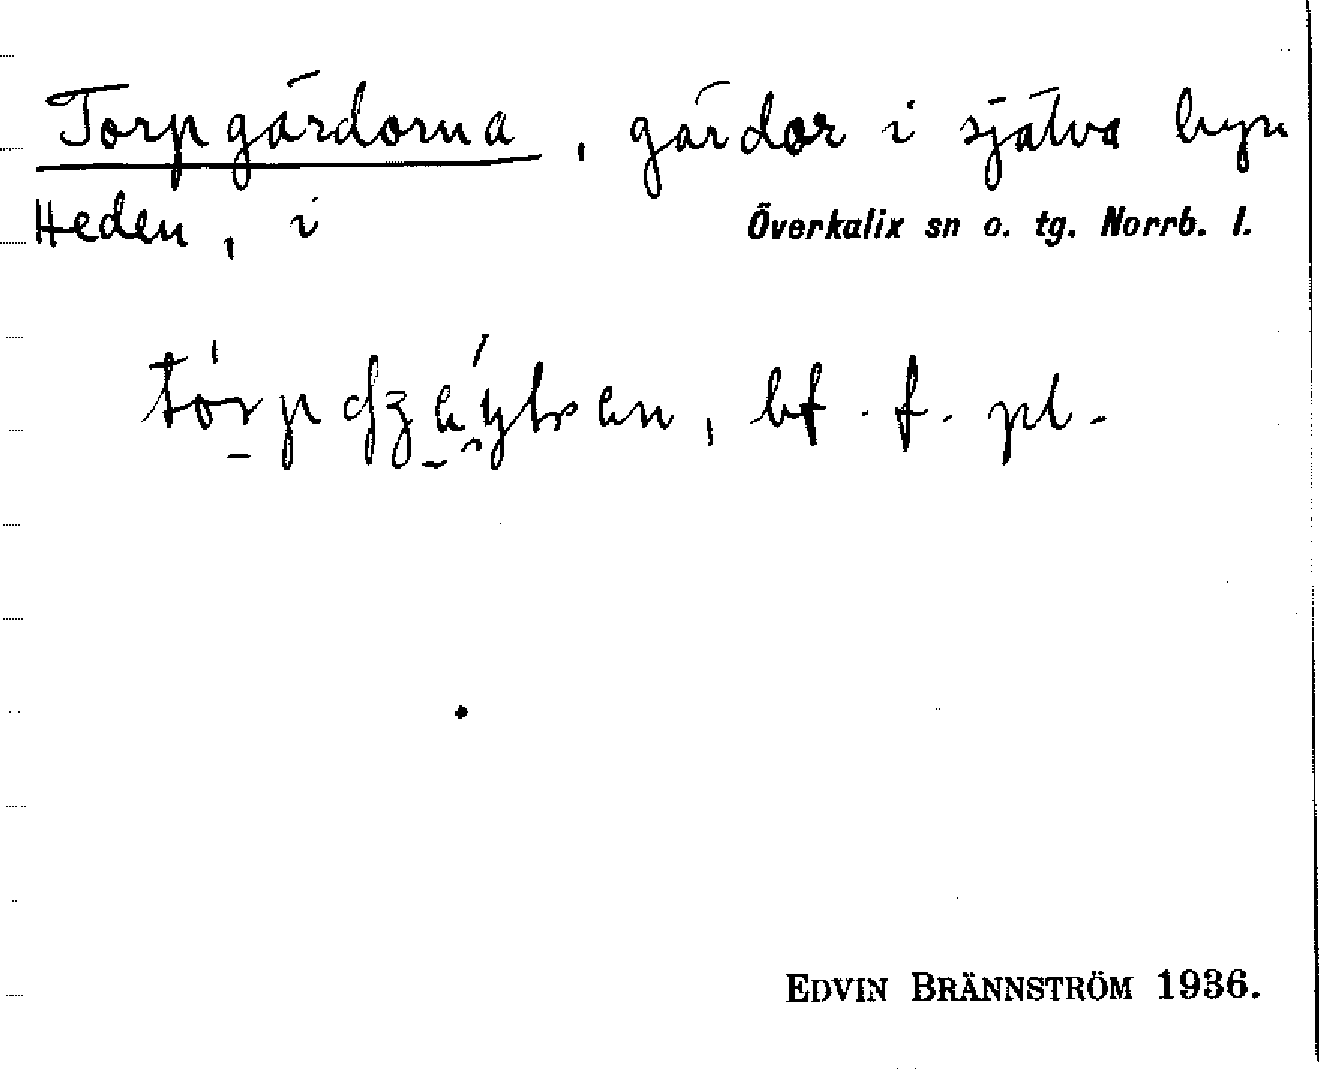 Torpgårdorna, gårdar i själva byn
Heden, i Överkalix sn o. tg. Norrb. l.
bf. f. pl.
EDVIN BRÄNNSTRÖM 1936.